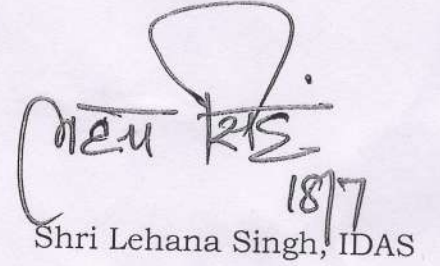 सिंह
18/7
Shri Lehana Singh, IDAS